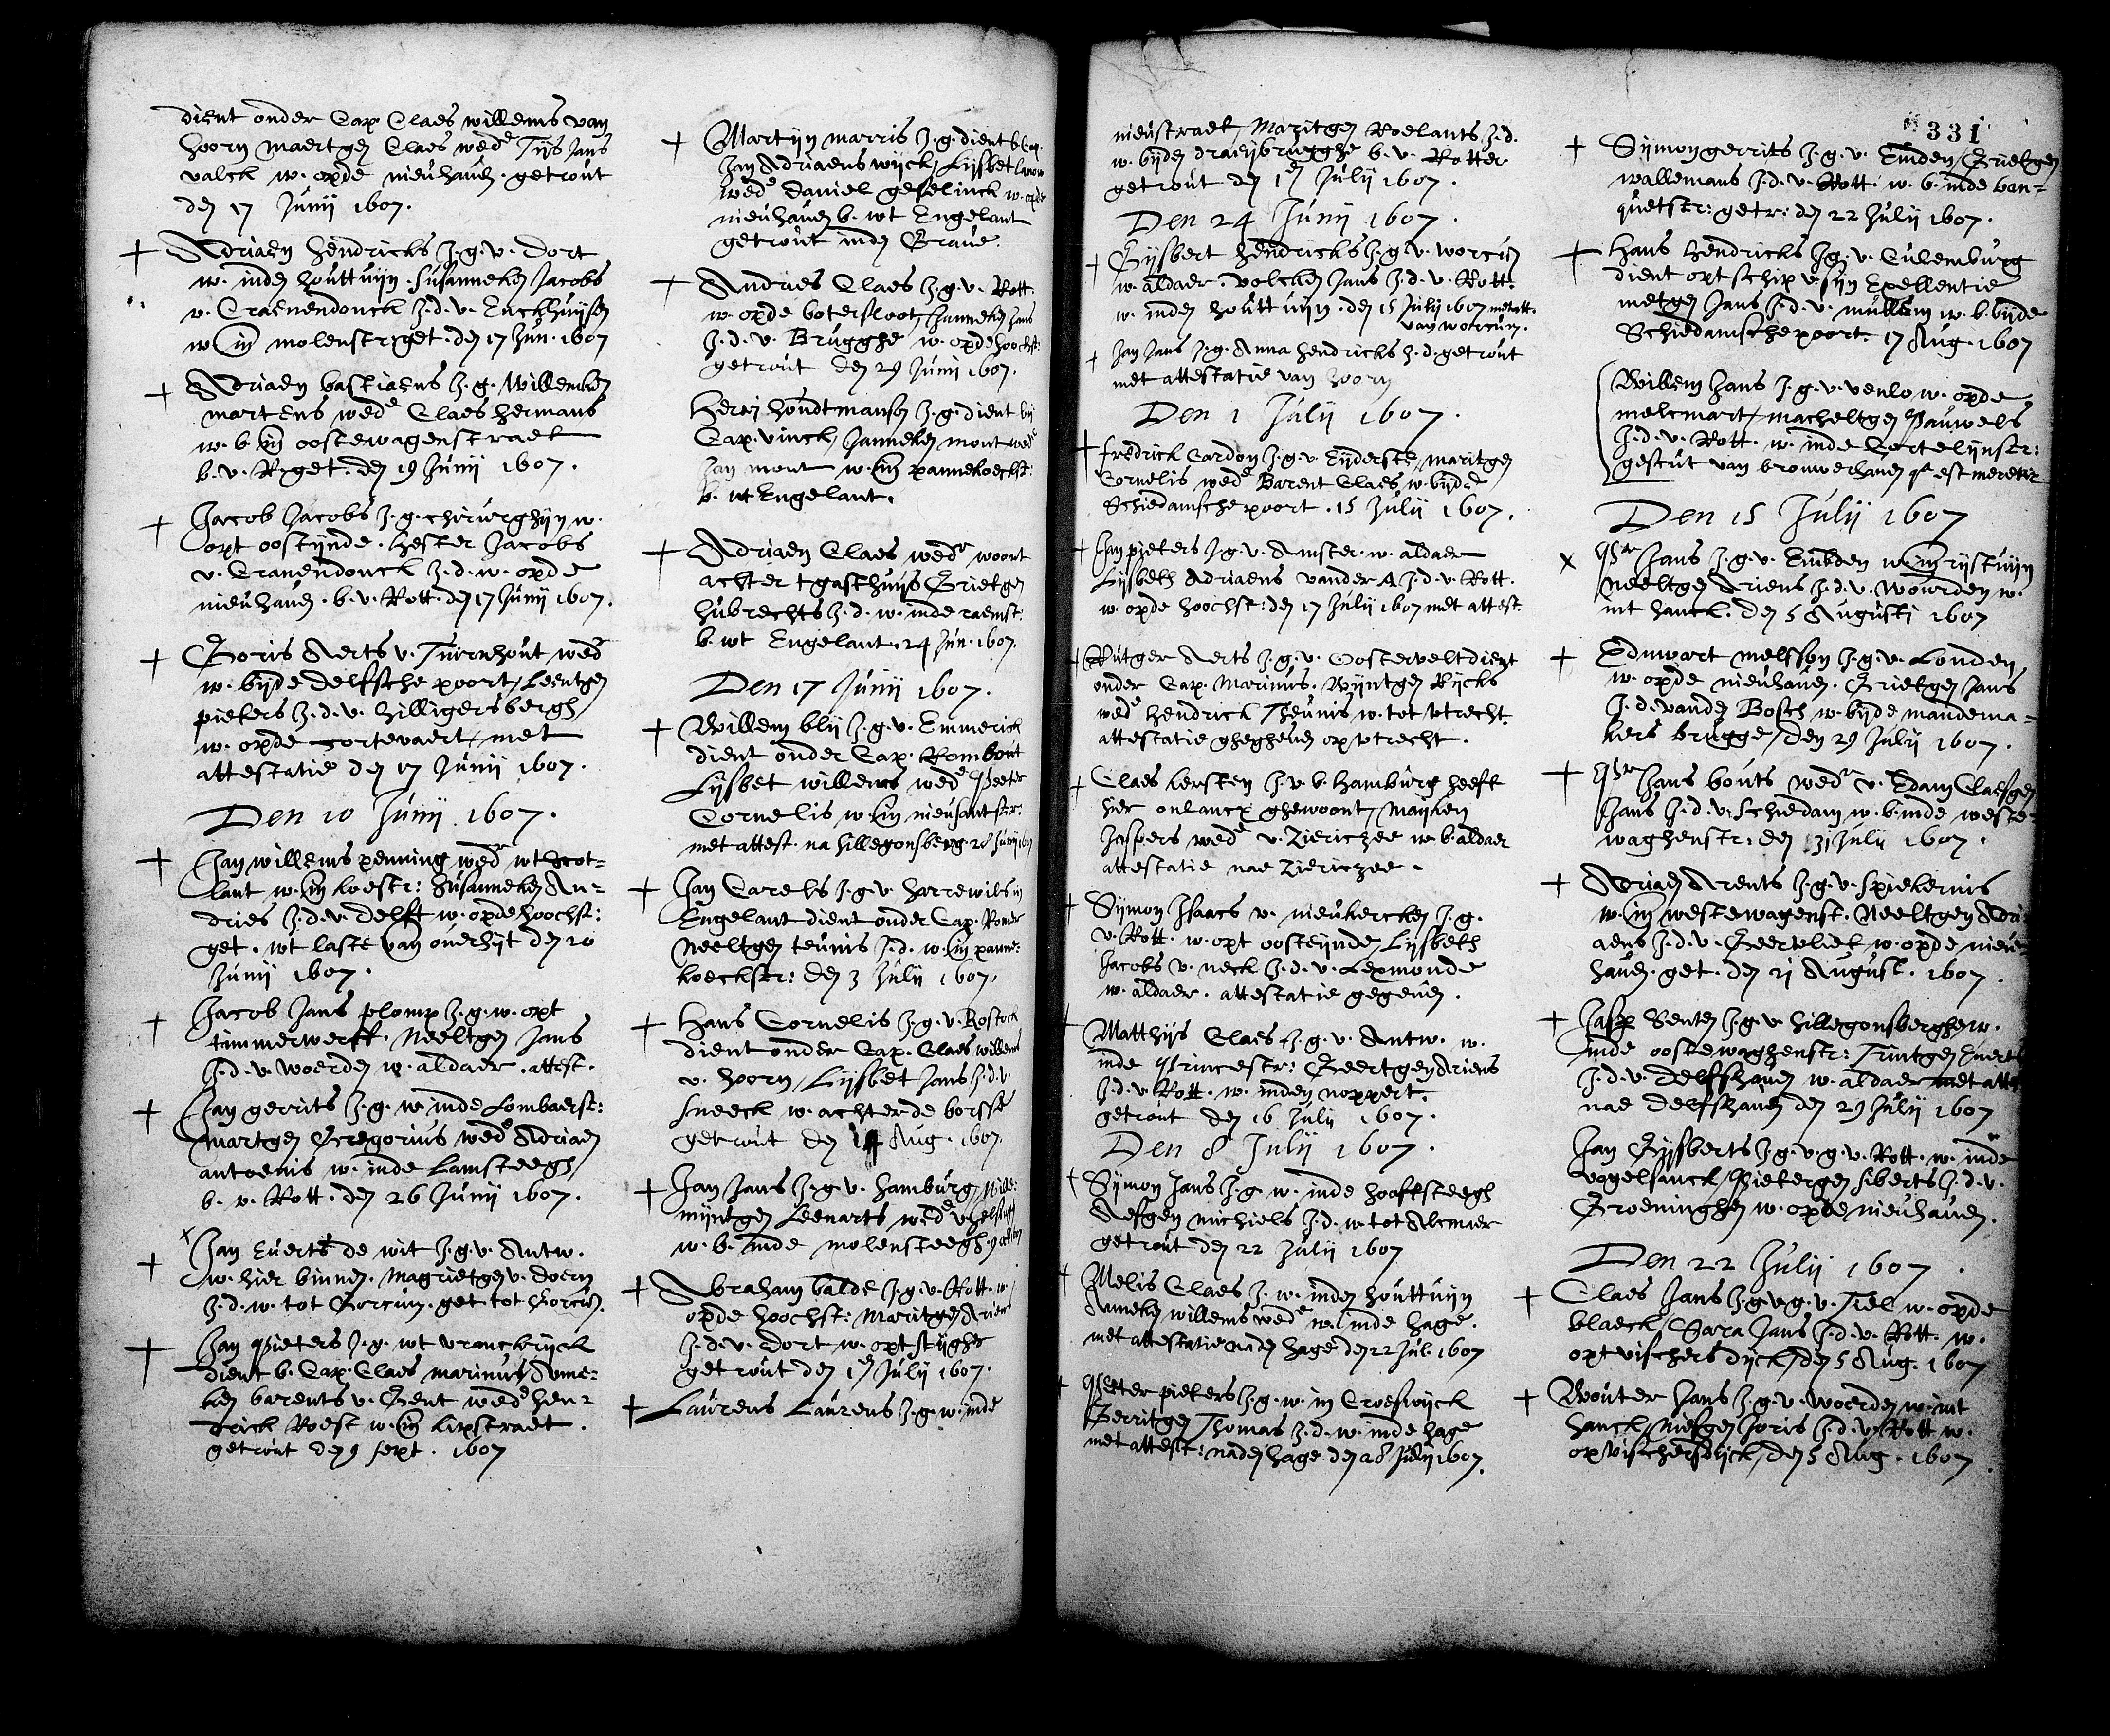 dient onder Cap Claes willems van
hoorn maertgen Claes wede Tijs Jans
valck w. opde nieuhaven. getrout
den 17 Junij 1607.
+ Adriaen hendricks J.g. v. Dort
w. inden houttuijn. Susanneken Jacobs
v. Craenendonck J.d. v. Enckhuijsen
w in molenstr. get. den 17 Jun. 1607
+ Adriaen bastiaens J.g. Willemken
martens wede Claes hermans
w. b. in oostewagenstraet
b. v. R. get. den 19 Junij 1607.
+ Jacob Jacobs J.g. chirurghijn w.
opt oostijnde. hester Jacobs
v. Cranendonck J.d. w. opde
nieuhaven. b. v. Rott. den 17 Junij 1607.
+ Goris Aerts v. Turnhout wedr
w. bijde delfsche poort, Leentgen
pieters J.d. v. hilligersbergh
w. opde cortevaert, met
attestatie den 17 Junij 1607.
Den 10 Junij 1607.
+ Jan willems penning wedr wt Scot-
lant w. in koestr: Susanneken An-
dries J.d. v. delft w. opde hoochst:
get. wt laste van overhijt den 10
Junij 1607.
+ Jacob Jans plomp J.g. w. opt
timmerwerff. Neeltgen Jans
J.d. v. woerden w. aldaer. attest.
+ Jan gerrits J.g. w inde Lombaerst:
martgen Gregorius wede Adriaen
antoenis w. inde Lamsteegh
b. v. Rott. den 26 Junij 1607.
+ Jan Everts de wit J.g. v. Antw.
w. hier binnen. magrietgen v. doern
J.d. w. tot Gorcum. get. tot Gorcum.
+ Jan Pieters J.g. wt vranckrijck
dient b. Cap. Claes marinus, Anne-
ken barents v. Gent wede hen-
drick Roest w. in lipstraet.
getrout den 9 sept. 1607
+ Martijn marris J.g. dient b Cap.
Jan Adriaens wijck, Lijsbet
wede daniel geselinck w. opde
nieuhaven b. wt Engelant
getrout inden Grave.
+ Andries Claes J.g. v. Rott.
w. opde botersloot, Janneken Jans
J.d. v. Brugghe w. opde hoochst:
getrout den 29 Junij 1607.
Henri houdtmanson J.g. dient bij
Cap. vinck, Janneken mont wede
Jan mont w. in pannekoeckst:
b. wt Engelant.
+ Adriaen Claes wedr woont
achter t gasthuijs Grietgen
hubrechts J.d. w. inde raemst.
b. wt Engelant. 24 Jun. 1607.
Den 17 Junij 1607.
+ Willem blij J.g. v. Emmerick
dient onder Cap. Rombout
Lijsbet willems wede Peeter
Cornelis w. in nieusantstr.
met attest. na hillegonsberg 28 Junij 1607
+ Jan Carels J.g. v. harrewits in
Engelant dient onder Cap. Romer
Neeltgen teunis J.d. w. in panne-
koeckstr: den 3 Julij 1607.
+ Hans Cornelis J.g. v. Rostock
dient onder Cap. Claes willems
v. hoorn, Lijsbet Jans J.d. v.
Sneeck w. achter de borsse
getrout den 14 Aug. 1607.
+ Jan Jans J.g. v. hamburg, Wille-
mijntgen Leenarts wede v. delfshaven
w. b. inde molensteegh. 9
+ Abraham balde J.g. v. Rott. w.
opde hoochst: Maritgen Ariens
J.d. v. dort w. opt stijgher
getrout den 1en Julij 1607.
+ Laurens Laurens J.g. w. inde
331
nieustraet, Maritgen Roelants J.d.
w. bijden draeijbrugghe b. v. Rotter
getrout den 1en Julij 1607.
Den 24 Junij 1607.
+ Gijsbert hendricks J.g. v. worcum
w. aldaer. volcken Jans J.d. v. Rott.
w. inden houttuijn. den 15 Julij 1607 met att.
van worcum.
+ Jan Jans J.g. Anna hendricks J.d. getrout
met attestatie van hoorn
Den 1 Julij 1607.
+ fredrick Cardon J.g. v. Eijderste, maritgen
Cornelis wede Barent Claes w. bijde
Schiedamsche poort. 15 Julij 1607.
+ Jan pieters J.g. v. Amster. w. aldaer
Lijsbeth Adriaens vander A J.d. v. Rott.
w. opde hoochst: den 17 Julij 1607 met attest.
+ Rutger Aerts J.g. v. Oostervelt dient
onder Cap. Marinus. Wijntgen Rijcks
wede hendrick Theunis w. tot utrecht.
attestatie ghegheven op utrecht.
+ Claes kersten J. v b. hamburg heeft
hier onlancx ghewoont, Maijken
Jaspers wede v. Ziericzee w. b. aldaer
attestatie nae Ziericzee.
+ Sijmon Isaacs v. nieukercken J.g.
v. Rott. w. opt oosteijnden Lijsbeth
Jacobs v. neck J.d. v. Lexmonde
w. aldaer. attestatie gegeven.
+ Matthijs Claes J.g. v. Antw. w.
inde Princestr: Geertgen Ariens
J.d. v. Rott. w. inden noppert.
getrout den 16 Julij 1607.
Den 8 Julij 1607.
+ Sijmon Jans J.g w. inde hooftsteegh
Aefgen michiels J.d. w. tot Alcmaer
getrout den 22 Julij 1607
+ Melis Claes J. w. inden houttuijn
Anneken willems wede w. inde hage.
met attestatie naden hage den 22 Jul. 1607
+ Petter pieters J.g. w. in Croeswijck
Gerritgen Thomas J.d. w. inde hage
met attest: naden hage den 28 Julij 1607.
+ Sijmon gerrits J.g. v. Emden, Grietgen
wallemans J.d. v. Rott. w. b. inde ban-
quetstr: getr: den 22 Julij 1607.
+ Hans Hendricks J.g. v. Culemburg
dient opt schip v. sijn Exellentie
metgen Jans J.d. v. mullem w. b. bijde
Schiedamsche poort. 17 Aug. 1607
Willem Jans J.g. v. venlo w. opde
melcmart, machteltgen Pauwels
J.d. v. Rott. w. inde Cortelijnstr:
gestut van brouwerhaven
Den 15 Julij 1607
x Pr Jans J.g. v. Embden w. in rijstuijn
Neeltgen Ariens J.d. v. Wourden w.
int hanck. den 5 Augusti 1607
+ Eduwart melsson J.g. v. Londen,
w. opde nieuhaven. Grietgen Jans
J.d. vanden Bosch w. bijde mandema-
kers brugge, den 29 Julij 1607.
+ Pr Jans bouts wedr v. Edam Claesgen
Jans J.d. v. Schiedam w. b. inde weste-
waghenstr: den 31 Julij 1607.
+ Adriaen Arents J.g. v. Spiekernis
w. in westewagenst. Neeltgen Adri-
aens J.d. v. Geervliet w. opde nieu-
haven. get. den 21 August. 1607.
+ Jasp Senten J.g. v. hillegonsberghe w.
inde oostewaghenstr: Trintgen Everts
J.d. v. delfshaven w. aldaer met attest
nae delfshaven den 29 Julij 1607
Jan Gijsberts J.g. v. g. v. Rott. w. inde
vogelsanck, Pietergen siberts J.d. v.
Groeninghen w. opde nieuhaven.
Den 22 Julij 1607.
+ Claes Jans J.g. v. g. v. Tiel w. opde
blaeck, Sara Jans J.d. v. Rott. w.
opt vischersdijck, den 5 Aug. 1607
+ Wouter Jans J.g. v. Woerden w. int
hanck, Niesgen Joris J.d. v. Rott w.
op vischersdijck, den 5 Aug. 1607